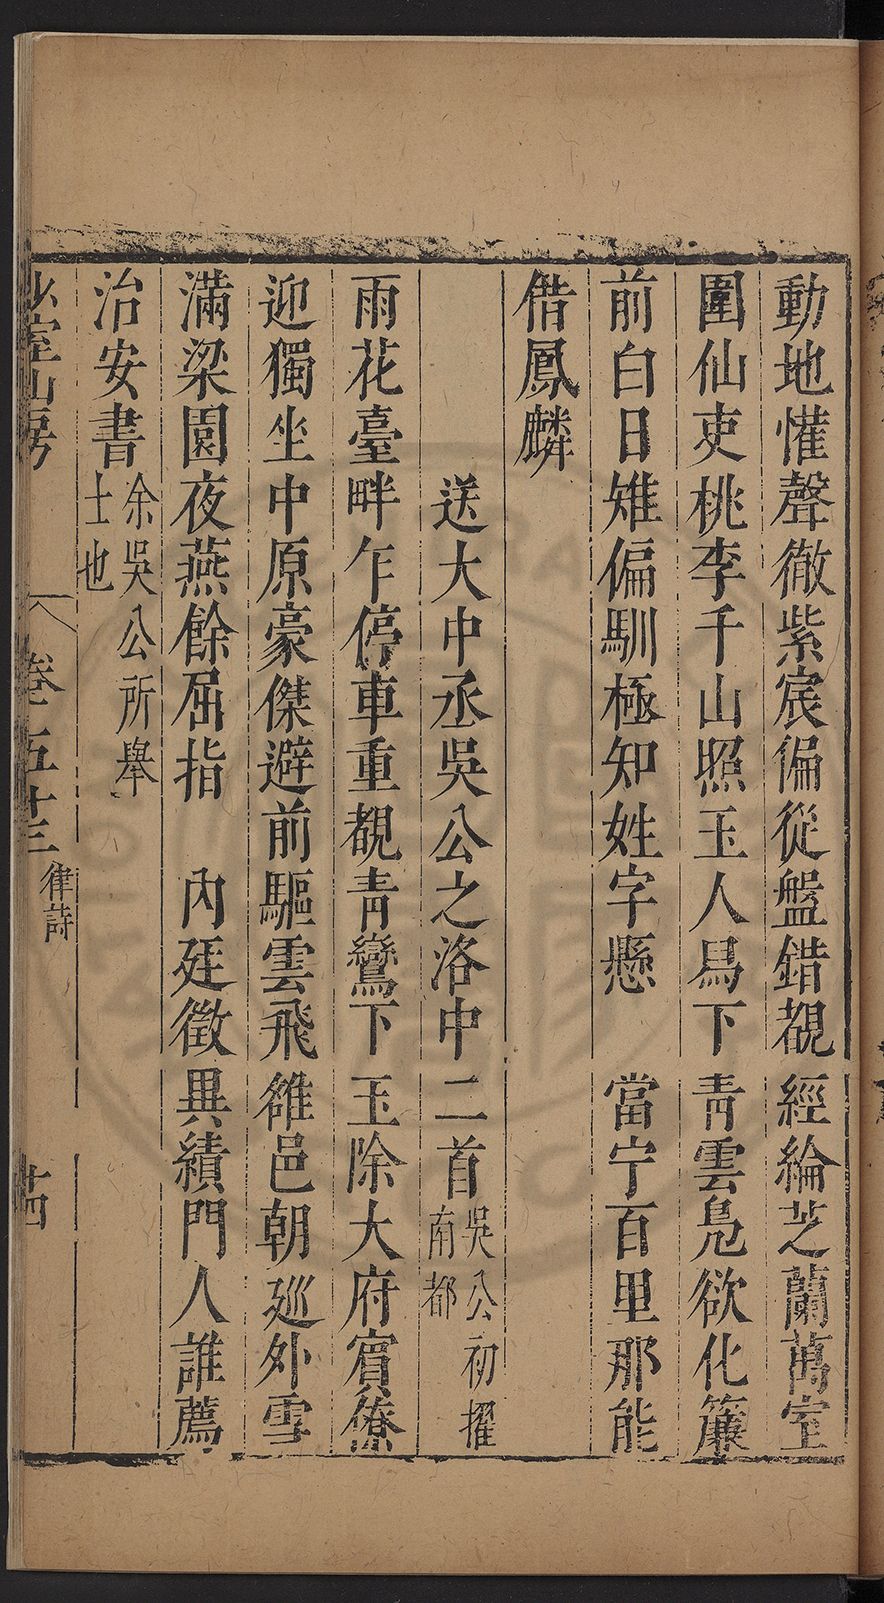 動地懽聲徹紫宸偏從盤錯覩經綸芝蘭萬室
圍仙吏桃李千山照玉人舄下青雲鳧欲化簾
前白日雉偏馴極知姓字懸當宁百里那能
借鳳麟
送大中丞吳公之洛中二首吳公初擢
南都
雨花臺畔乍停車重覩青鸞下玉除大府賓僚
迎獨坐中原豪傑避前驅雲飛雒邑朝廵外雪
滿梁園夜燕餘屈指內廷徵異績門人誰薦
治安書余吳公所舉
士也
少室山房
卷五十三
律詩
十四